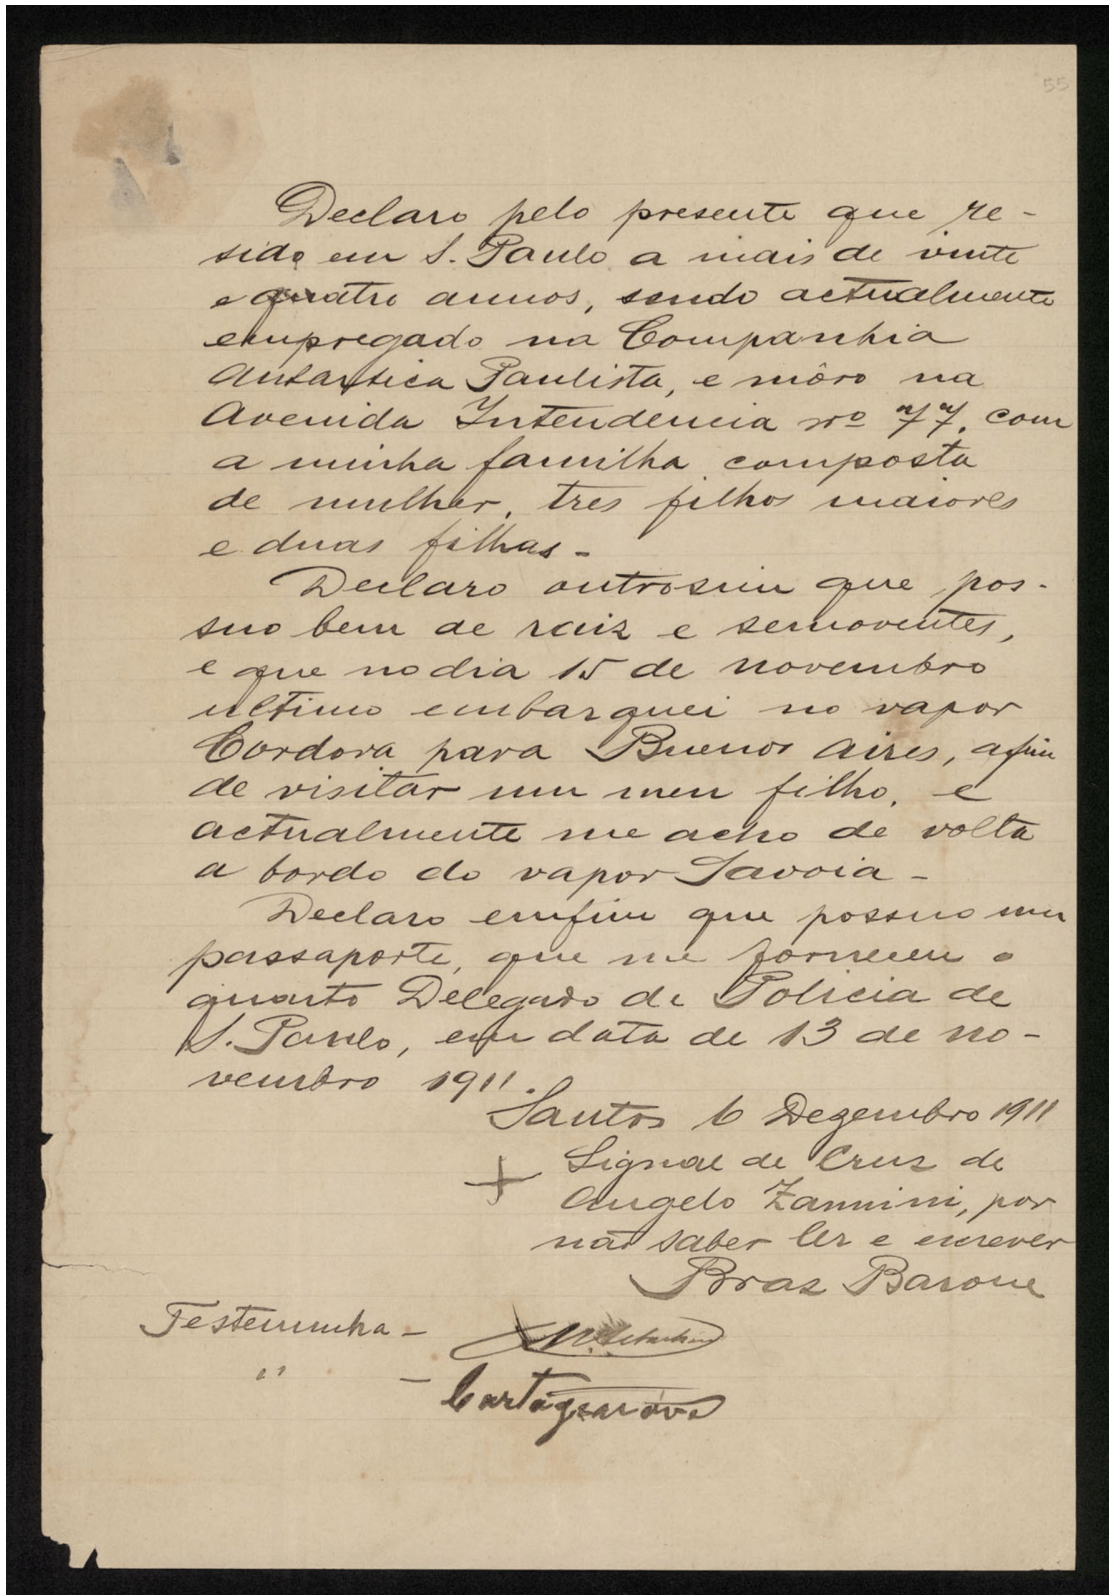 55
Declaro pelo presente que re-
sido em S. Paulo a mais de vinte
e quatro annos, sendo actualmente
empregado na Companhia
Antartica Paulista, e môro na
Avenida Intendencia nº 77, com
a minha familha composta
de mulher, tres filhos maiores
e duas filhas -
Declaro outrosim que pos-
suo bem de raiz e semoventes,
e que no dia 15 de novembro
ultimo embarquei no vapor
Cordova para Buenos Aires, afim
de visitar um meu filho, e
actualmente me acho de volta
a bordo do vapor Savoia -
Declaro emfim que possuo um
passaporte, que me forneceu o
quarto Delegado de Policia de
S. Paulo, em data de 13 de no-
vembro 1911.
Santos 6 Dezembro 1911
+ Signal de Cruz de
Angelo Zannini, por
não saber ler e escrever
Braz Barone
Testemunha -
" -